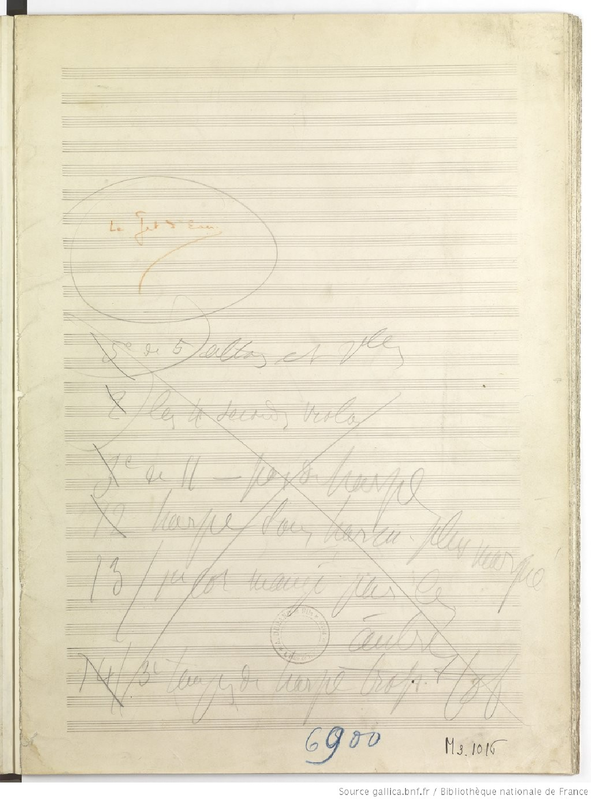 Le Jet d'eau
5e de 5 altos et
8 les 4 seconds viol
3e de 11 — harpe
12 harpe sons harm. plus marqué
13 / 1er cor mangé par les
autres
14 / 3e temps de harpe trop
6900
Ms. 1015
Source gallica.bnf.fr / Bibliothèque nationale de France